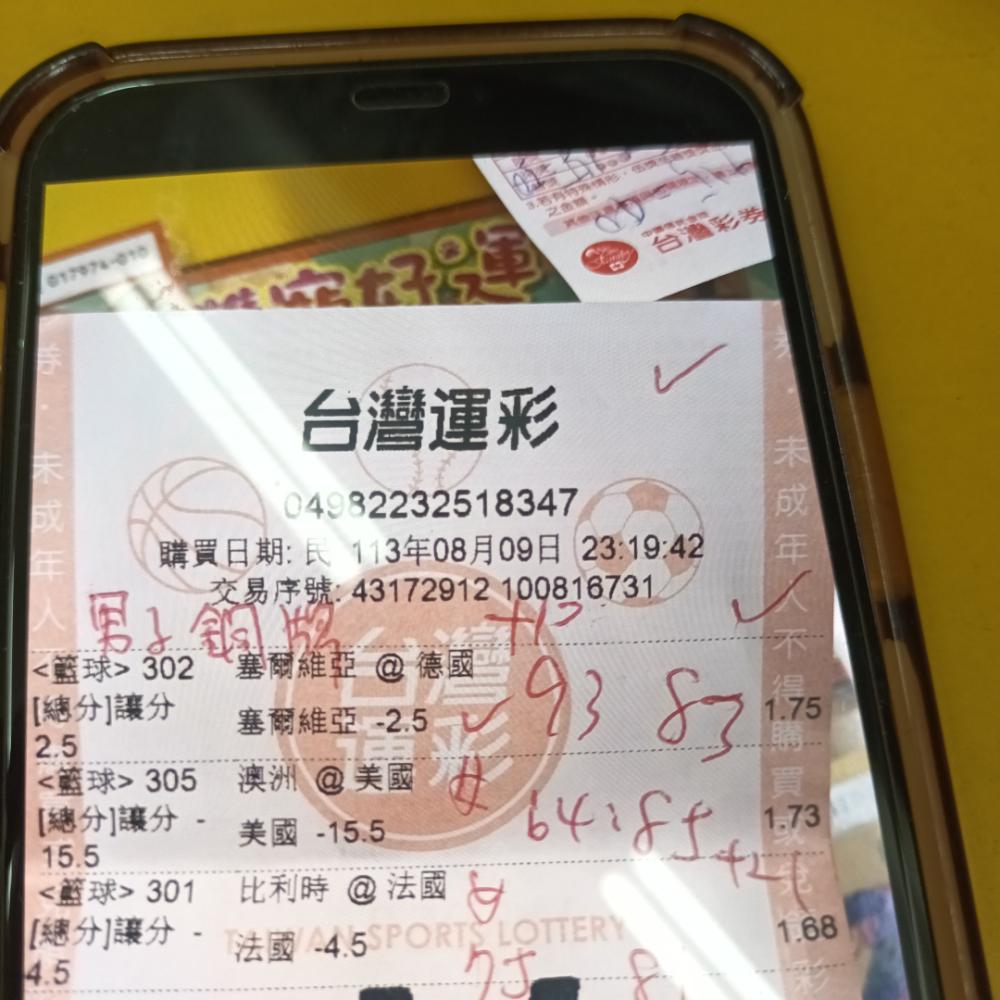 3.若有特殊情形,
之金額。
台灣彩券
017974-010
好運
台灣運彩
04982232518347
購買日期: 民 113年08月09日 23:19:42
交易序號: 43172912 100816731
男子銅牌
<籃球> 302 塞爾維亞 @ 德國
93 83
[總分]讓分 塞爾維亞 -2.5 1.75
2.5
<籃球> 305 澳洲 @ 美國 女
64:85
[總分]讓分 - 美國 -15.5 1.73
15.5
+21
<籃球> 301 比利時 @ 法國 女
[總分]讓分 - 法國 -4.5 1.68
4.5
75 8
TAIWAN SPORTS LOTTERY
券.未成年人
未成年人不得購買或兌
彩